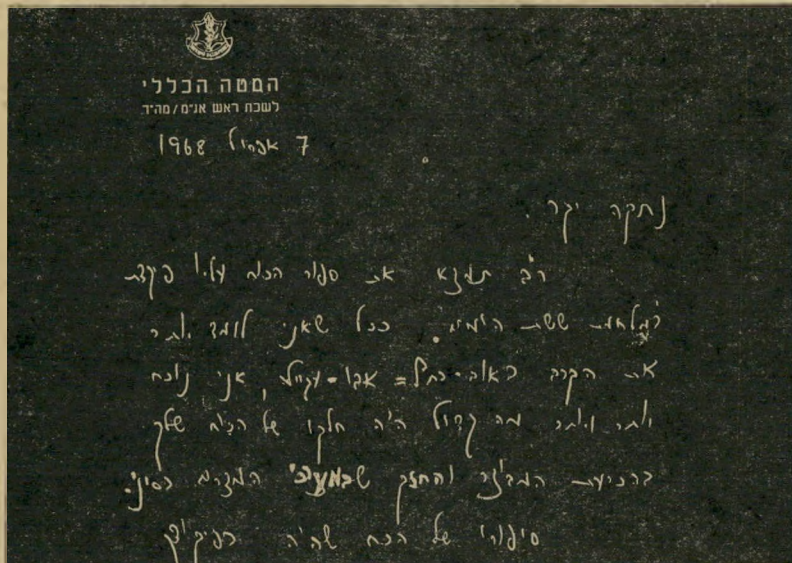 המטה הכללי
לשכת ראש אג״מ/מה״ד
7 אפריל 1968
נתקה יקר.
רב תמצא את ספור הכוח עליו פקדת
במלחמת ששת הימים. ככל שאני לומד יותר
את הקרב באום-כתף = אבו-עגילה, אני נוכח
יותר ויותר מה גדול היה חלקו של הכוח שלך
בהכרעת המבוצר והחזק שבמערכי המצרים בסיני.
סיפורו של הכח שהיה בפיקודך